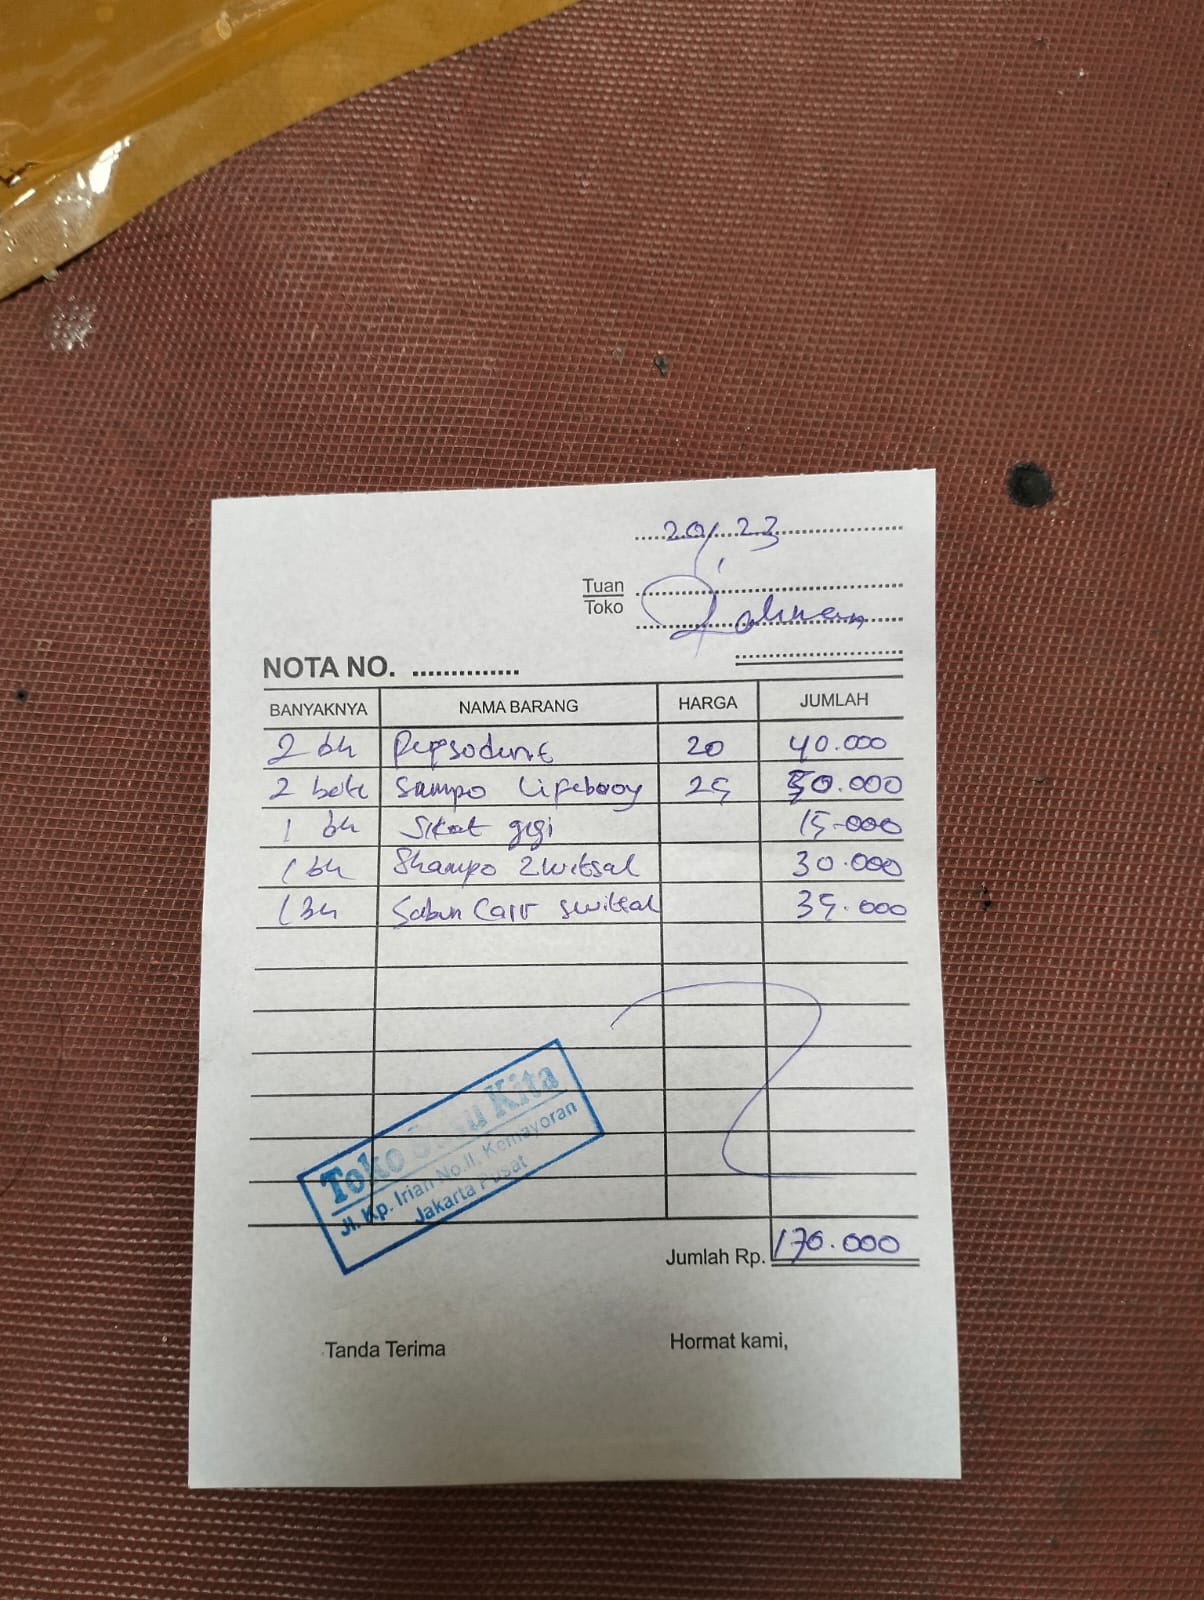 20/23
Tuan
Toko
NOTA NO. ..............
BANYAKNYA NAMA BARANG HARGA JUMLAH
2 bh Pepsodent 20 40.000
2 botl Sampo Lifebooy 25 50.000
1 bh Sikat gigi 15.000
1 bh Shampo Zwitsal 30.000
1 Bh Sabun Cair switsal 35.000
Toko Susu Kita
Jl. Kp. Irian No.II. Kemayoran
Jakarta Pusat
Jumlah Rp. 170.000
Tanda Terima Hormat kami,